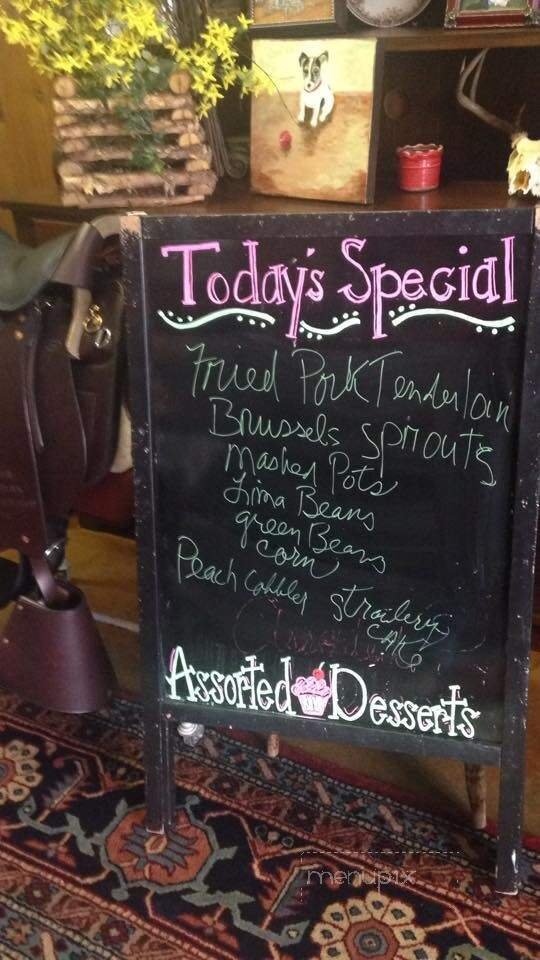 Today's Special
Fried Pork Tenderloin
Brussels sprouts
Mashed Pots
Lima Beans
green Beans
corn
Peach Cobbler strawberry
cake
Assorted Desserts
menupix